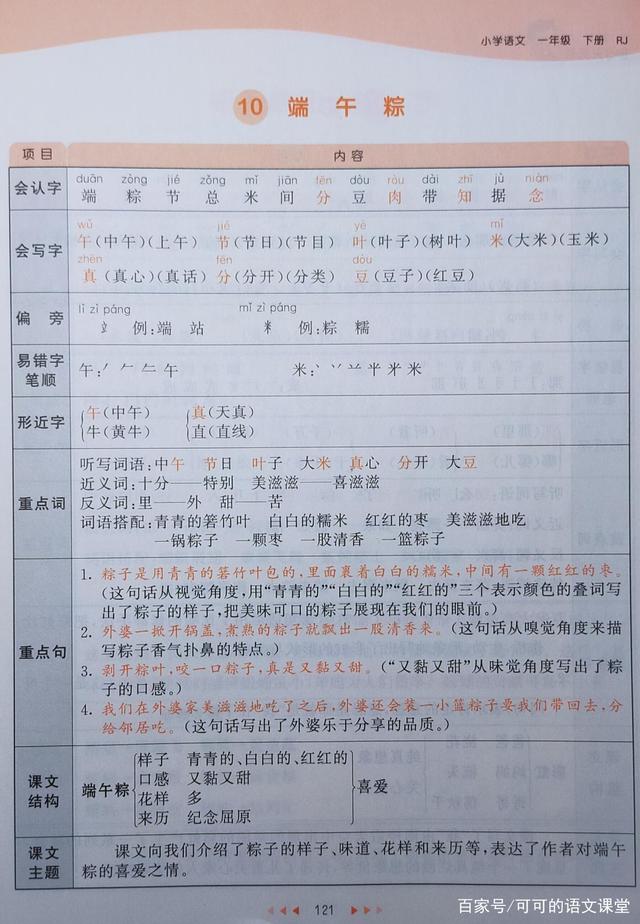 小学语文 一年级 下册 RJ
10 端午粽
项目 内容
duān zòng jié zǒng mǐ jiān fēn dòu ròu dài zhī jù niàn
会认字 端 粽 节 总 米 间 分 豆 肉 带 知 据 念
wǔ jié yè mǐ
午(中午)(上午) 节(节日)(节目) 叶(叶子)(树叶) 米(大米)(玉米)
会写字
zhēn fēn dòu
真(真心)(真话) 分(分开)(分类) 豆(豆子)(红豆)
lì zì páng mǐ zì páng
偏旁 例:端 站 例:粽 糯
易错字
笔顺
午: 丿 𠂉 午 米: 丷 半 米 米
形近字
午(中午) 真(天真)
牛(黄牛) 直(直线)
重点词
听写词语:中午 节日 叶子 大米 真心 分开 大豆
近义词:十分——特别 美滋滋——喜滋滋
反义词:里——外 甜——苦
词语搭配:青青的箬竹叶 白白的糯米 红红的枣 美滋滋地吃
一锅粽子 一颗枣 一股清香 一篮粽子
重点句
1. 粽子是用青青的箬竹叶包的,里面裹着白白的糯米,中间有一颗红红的枣。
(这句话从视觉角度,用“青青的”“白白的”“红红的”三个表示颜色的叠词写
出了粽子的样子,把美味可口的粽子展现在我们的眼前。)
2. 外婆一掀开锅盖,煮熟的粽子就飘出一股清香来。(这句话从嗅觉角度来描
写粽子香气扑鼻的特点。)
3. 剥开粽叶,咬一口粽子,真是又黏又甜。(“又黏又甜”从味觉角度写出了粽
子的口感。)
4. 我们在外婆家美滋滋地吃了之后,外婆还会装一小篮粽子要我们带回去,分
给邻居吃。(这句话写出了外婆乐于分享的品质。)
课文
结构
端午粽
样子 青青的、白白的、红红的
口感 又黏又甜
花样 多
来历 纪念屈原
喜爱
课文
主题
课文向我们介绍了粽子的样子、味道、花样和来历等,表达了作者对端午
粽的喜爱之情。
121
百家号/可可的语文课堂